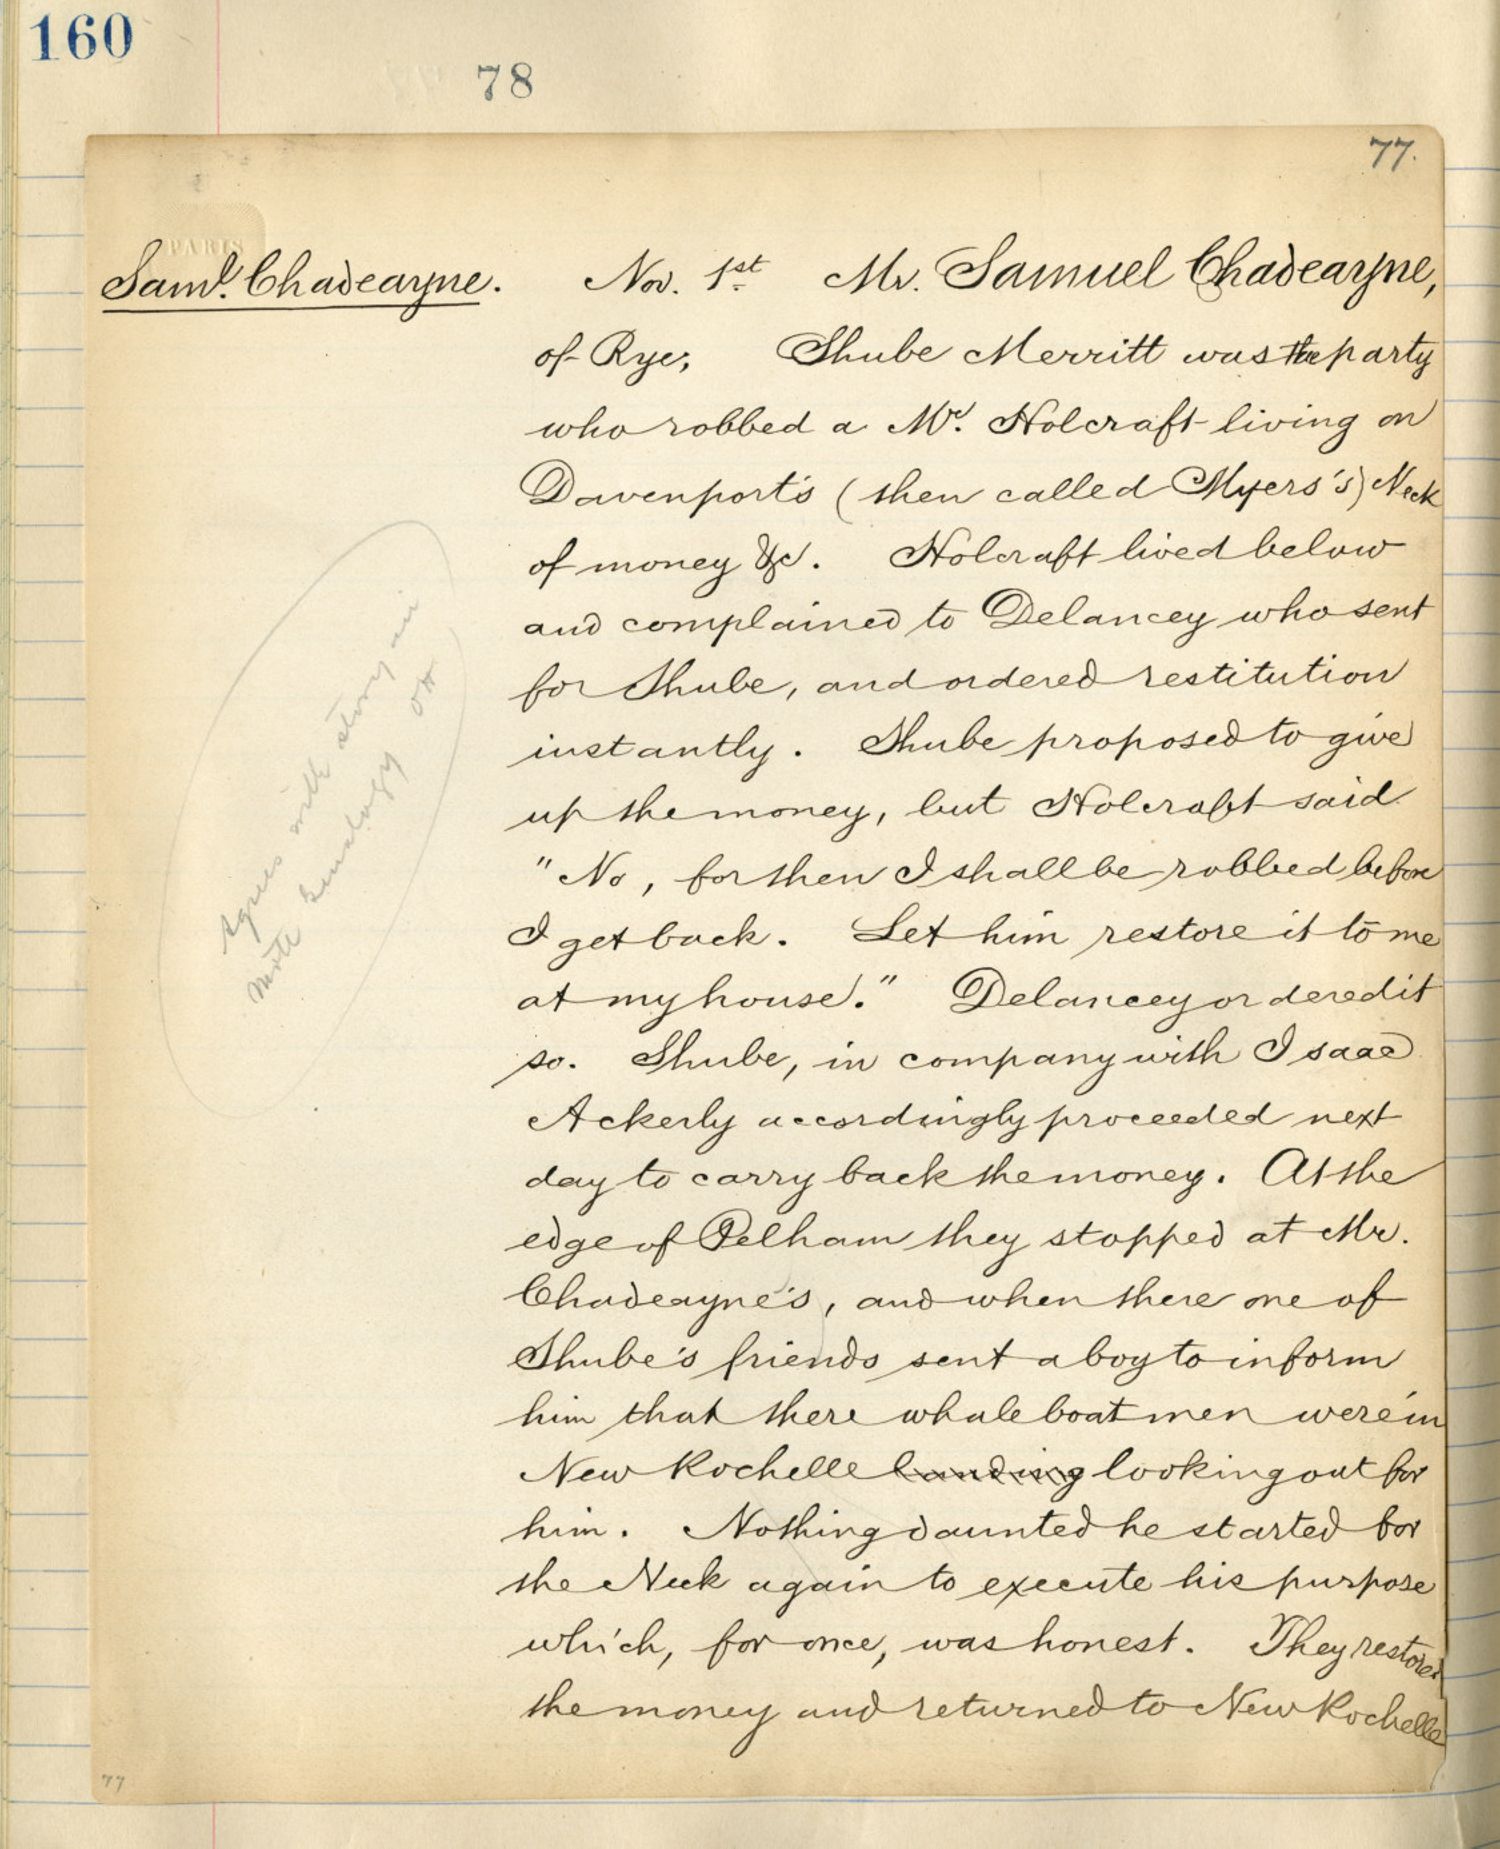 160
78
77.
PARIS
Saml. Chadeayne. Nov. 1st. Mr. Samuel Chadeayne,
of Rye; Shube Merritt was the party
who robbed a Mr. Holcraft living on
Davenport's (then called Myers's) Neck
of money &c. Holcraft lived below
and complained to Delancey who sent
for Shube, and ordered restitution
instantly. Shube proposed to give
up the money, but Holcraft said
"No, for then I shall be robbed before
I get back. Let him restore it to me
at my house." Delancey ordered it
so. Shube, in company with Isaac
Ackerly accordingly proceeded next
day to carry back the money. At the
edge of Pelham they stopped at Mr.
Chadeayne's, and when there one of
Shube's friends sent a boy to inform
him that there whaleboatmen were in
New Rochelle landing looking out for
him. Nothing daunted he started for
the Neck again to execute his purpose
which, for once, was honest. They restored
the money and returned to New Rochelle
Agrees with story in
Mott Genealogy
77